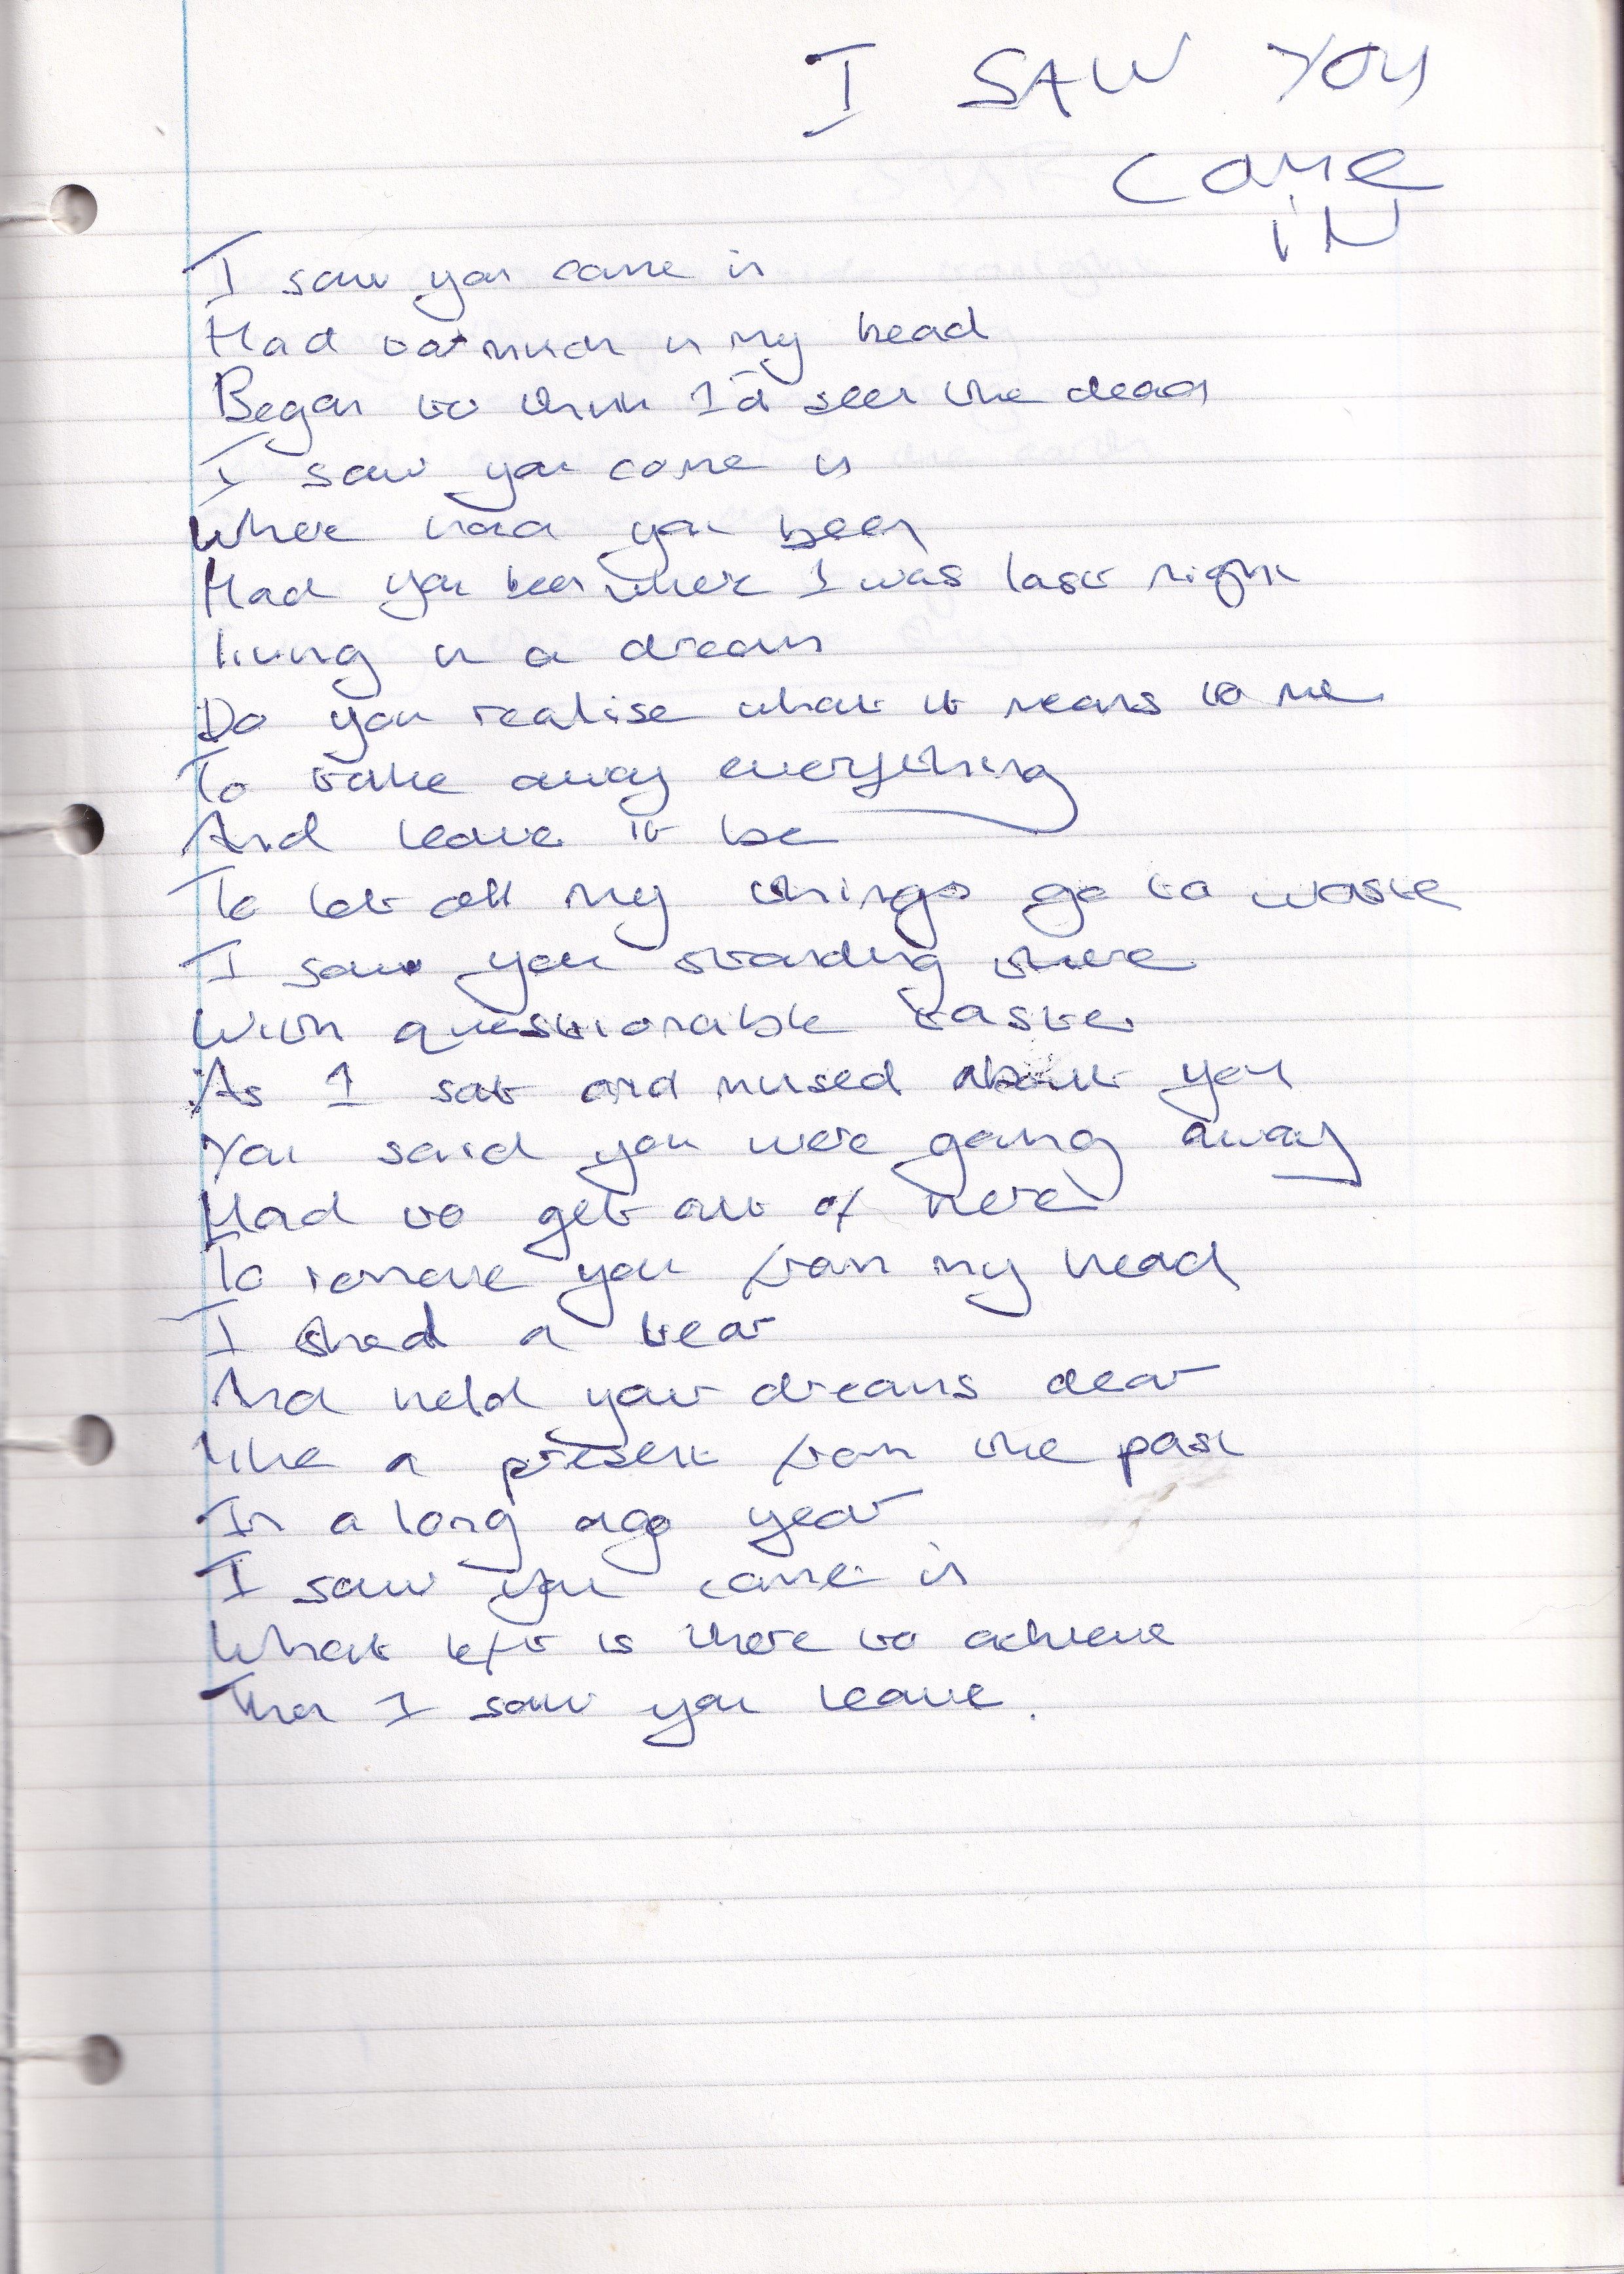 I SAW YOU
COME
IN
I saw you come in
Had too much in my head
Began to think I'd seen the dead
I saw you come in
Where had you been
Had you been where I was last night
living in a dream
Do you realise what it means to me
To take away everything
And leave it be
To let all my things go to waste
I saw you standing there
With questionable taste
As I sat and mused about you
You said you were going away
Had to get out of here
To remove you from my head
I shed a tear
And held your dreams dear
like a present from the past
In a long ago year
I saw you come in
What left is there to achieve
Then I saw you leave.